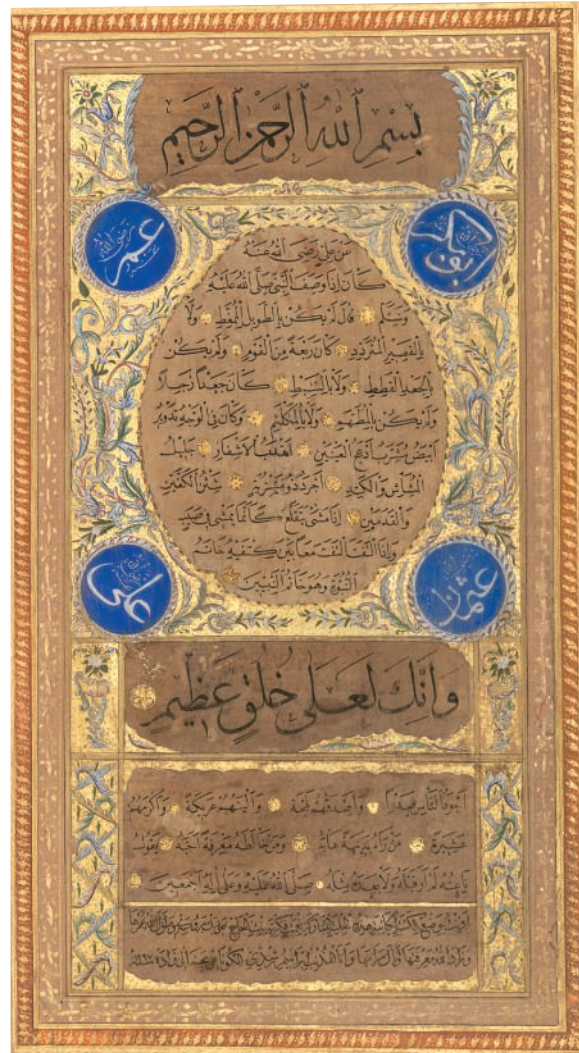 بِسْمِ ٱللّٰهِ ٱلرَّحْمٰنِ ٱلرَّحِيمِ
ابوبكر
عمر رضى الله عنه
عَنْ عَلِيٍّ رَضِيَ اللهُ عَنْهُ
كَانَ إِذَا وَصَفَ النَّبِيَّ صَلَّى اللهُ عَلَيْهِ
وَسَلَّمَ قَالَ لَمْ يَكُنْ بِالطَّوِيلِ الْمُمَّغِطِ وَلَا
بِالْقَصِيرِ الْمُتَرَدِّدِ كَانَ رَبْعَةً مِنَ الْقَوْمِ وَلَمْ يَكُنْ
بِالْجَعْدِ الْقَطَطِ وَلَا بِالسَّبِطِ كَانَ جَعْدًا رَجِلًا
وَلَمْ يَكُنْ بِالْمُطَهَّمِ وَلَا بِالْمُكَلْثَمِ وَكَانَ فِي الْوَجْهِ تَدْوِيرٌ
أَبْيَضُ مُشْرَبٌ أَدْعَجُ الْعَيْنَيْنِ أَهْدَبُ الْأَشْفَارِ جَلِيلُ
الْمُشَاشِ وَالْكَتِدِ أَجْرَدُ ذُو مَسْرُبَةٍ شَثْنُ الْكَفَّيْنِ
وَالْقَدَمَيْنِ إِذَا مَشَى يَتَقَلَّعُ كَأَنَّمَا يَمْشِي فِي صَبَبٍ
وَإِذَا الْتَفَتَ الْتَفَتَ مَعًا بَيْنَ كَتِفَيْهِ خَاتَمُ
النُّبُوَّةِ وَهُوَ خَاتَمُ النَّبِيِّينَ
عثمان
على
وَإِنَّكَ لَعَلَى خُلُقٍ عَظِيمٍ
أَجْوَدُ النَّاسِ صَدْرًا وَأَصْدَقُهُمْ لَهْجَةً وَأَلْيَنُهُمْ عَرِيكَةً وَأَكْرَمُهُمْ
عَشِيرَةً مَنْ رَآهُ بَدِيهَةً هَابَهُ وَمَنْ خَالَطَهُ مَعْرِفَةً أَحَبَّهُ يَقُولُ
نَاعِتُهُ لَمْ أَرَ قَبْلَهُ وَلَا بَعْدَهُ مِثْلَهُ صَلَّى اللهُ عَلَيْهِ وَعَلَى آلِهِ أَجْمَعِينَ